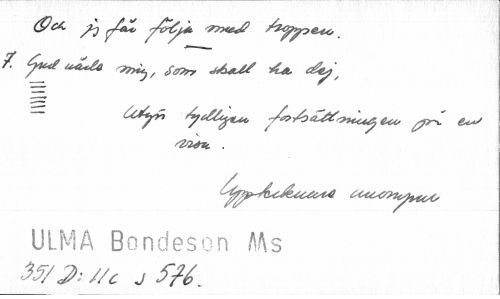 Och jg får följa med troppen.
7. Gud nåde mig, som skall ha dej,
Utgör tydligen fortsättningen på en
visa.
Upptecknare anonym
ULMA Bondeson Ms
351 D: 11c s 576.